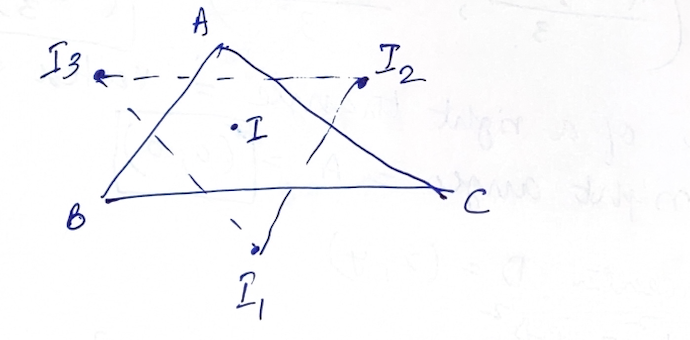 A
I3
I2
I
B
C
I1